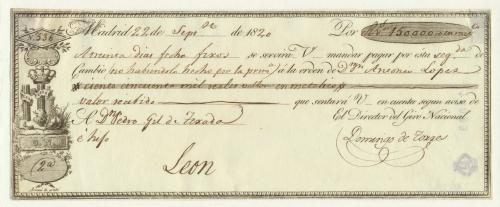 536
Madrid 22 de Sepre de 1820 Por Rs. vn. 150000
A noventa dias fecha fixos se servirá V. mandar pagar por esta segda. de
Cambio no habiendolo hecho por la prima. á la orden de Dn. Antonio Lopez
ciento cincuenta mil reales vellon en metalico
valor recibido que sentará V. en cuenta segun aviso de
A Dn. Pedro Gil de Texada El Director del Giro Nacional
é hijo Domingo de Torres
2a
Leon